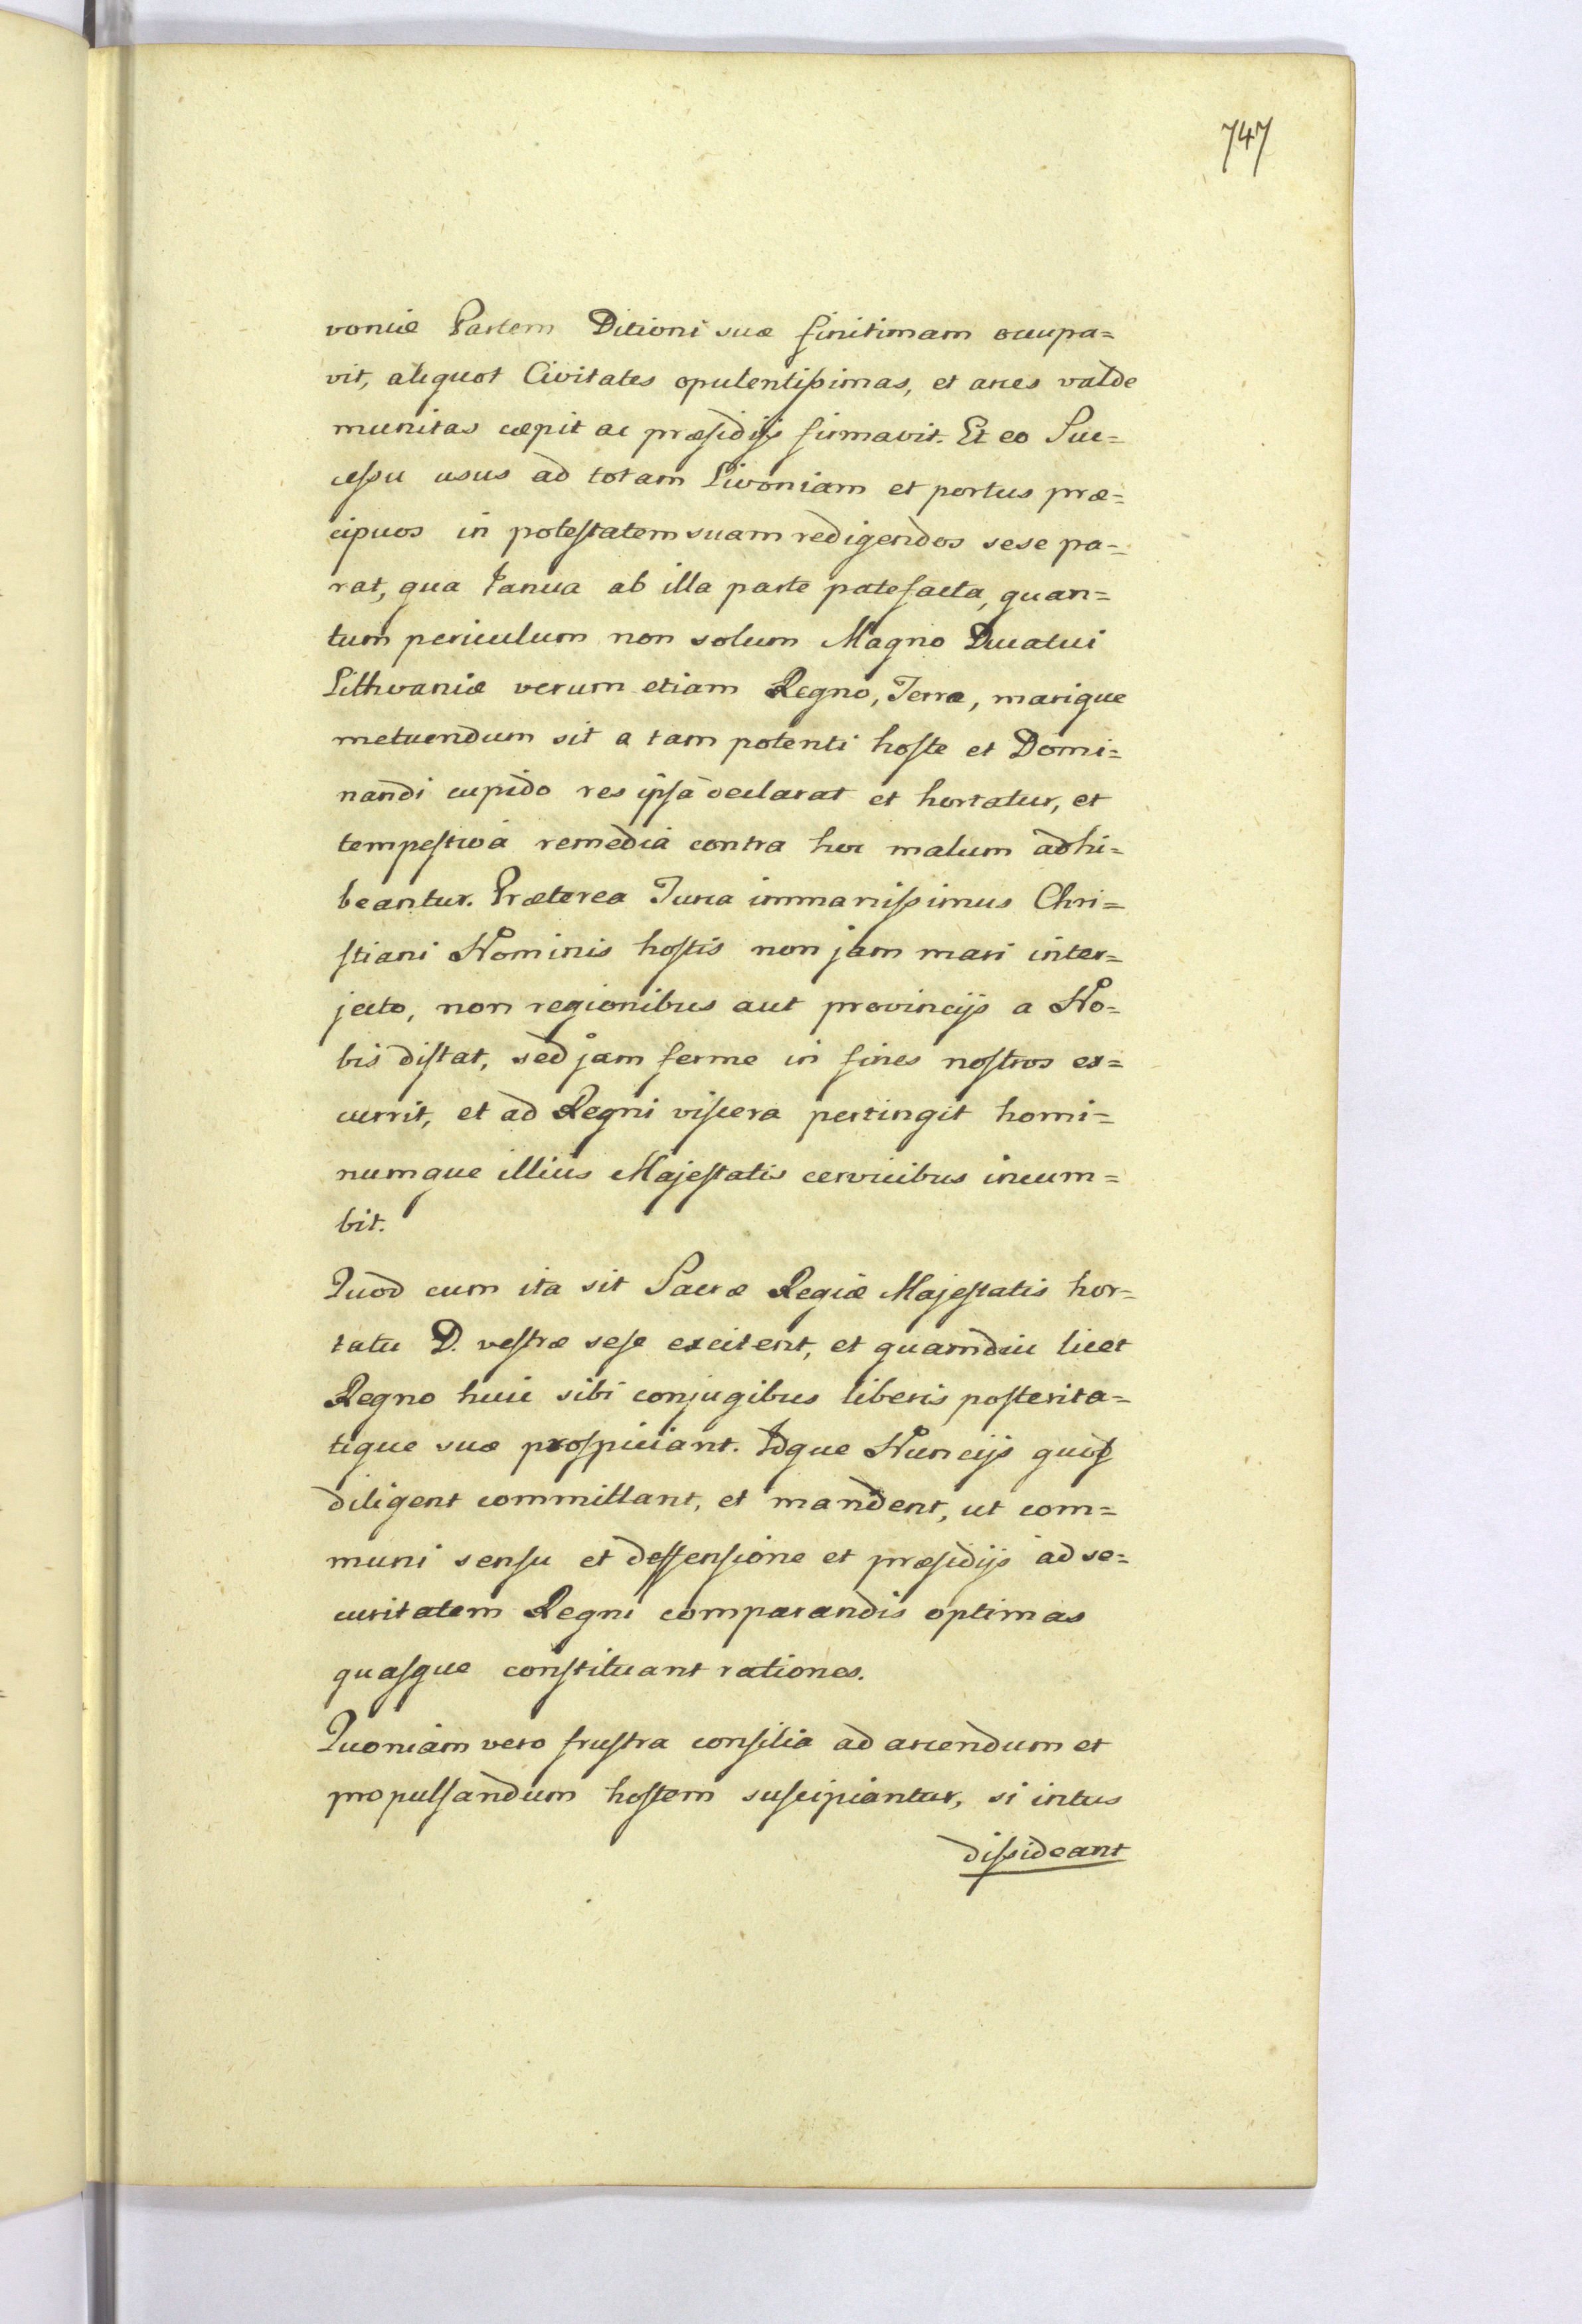 747
voniæ Partem Ditioni suæ finitimam occupa=
vit, aliquot Civitates opulentissimas, et arces valde
munitas cæpit ac præsidijs firmavit. Et eo Suc=
cessu usus ad totam Livoniam et portus præ=
cipuos in potestatem suam redigendos sese pa=
rat, qua Janua ab illa parte patefacta, quan=
tum periculum non solum Magno Ducatui
Lithvaniæ verum etiam Regno, Terræ, marique
metuendum sit a tam potenti hoste et Domi=
nandi cupido res ipsa declarat et hortatur, et
tempestiva remedia contra hoc malum adhi=
beantur. Præterea Turca immanissimus Chri=
stiani Nominis hostis non jam mari inter=
jecto, non regionibus aut provincijs a No=
bis distat, sed jam ferme in fines nostros ex=
currit, et ad Regni viscera pertingit homi=
numque illius Majestatis cervicibus incum=
bit.
Quod cum ita sit Sacræ Regiæ Majestatis hor=
tatu D. vestræ sese excitent, et quamdiu licet
Regno huic sibi conjugibus liberis posterita=
tique suæ prospiciant. Idque Nuncijs quos
diligent committant, et mandent, ut com=
muni sensu et deffensione et præsidijs ad se=
curitatem Regni comparandis optimas
quasque constituant rationes.
Quoniam vero frustra consilia ad arcendum et
propulsandum hostem suscipiantur, si intus
dissideant